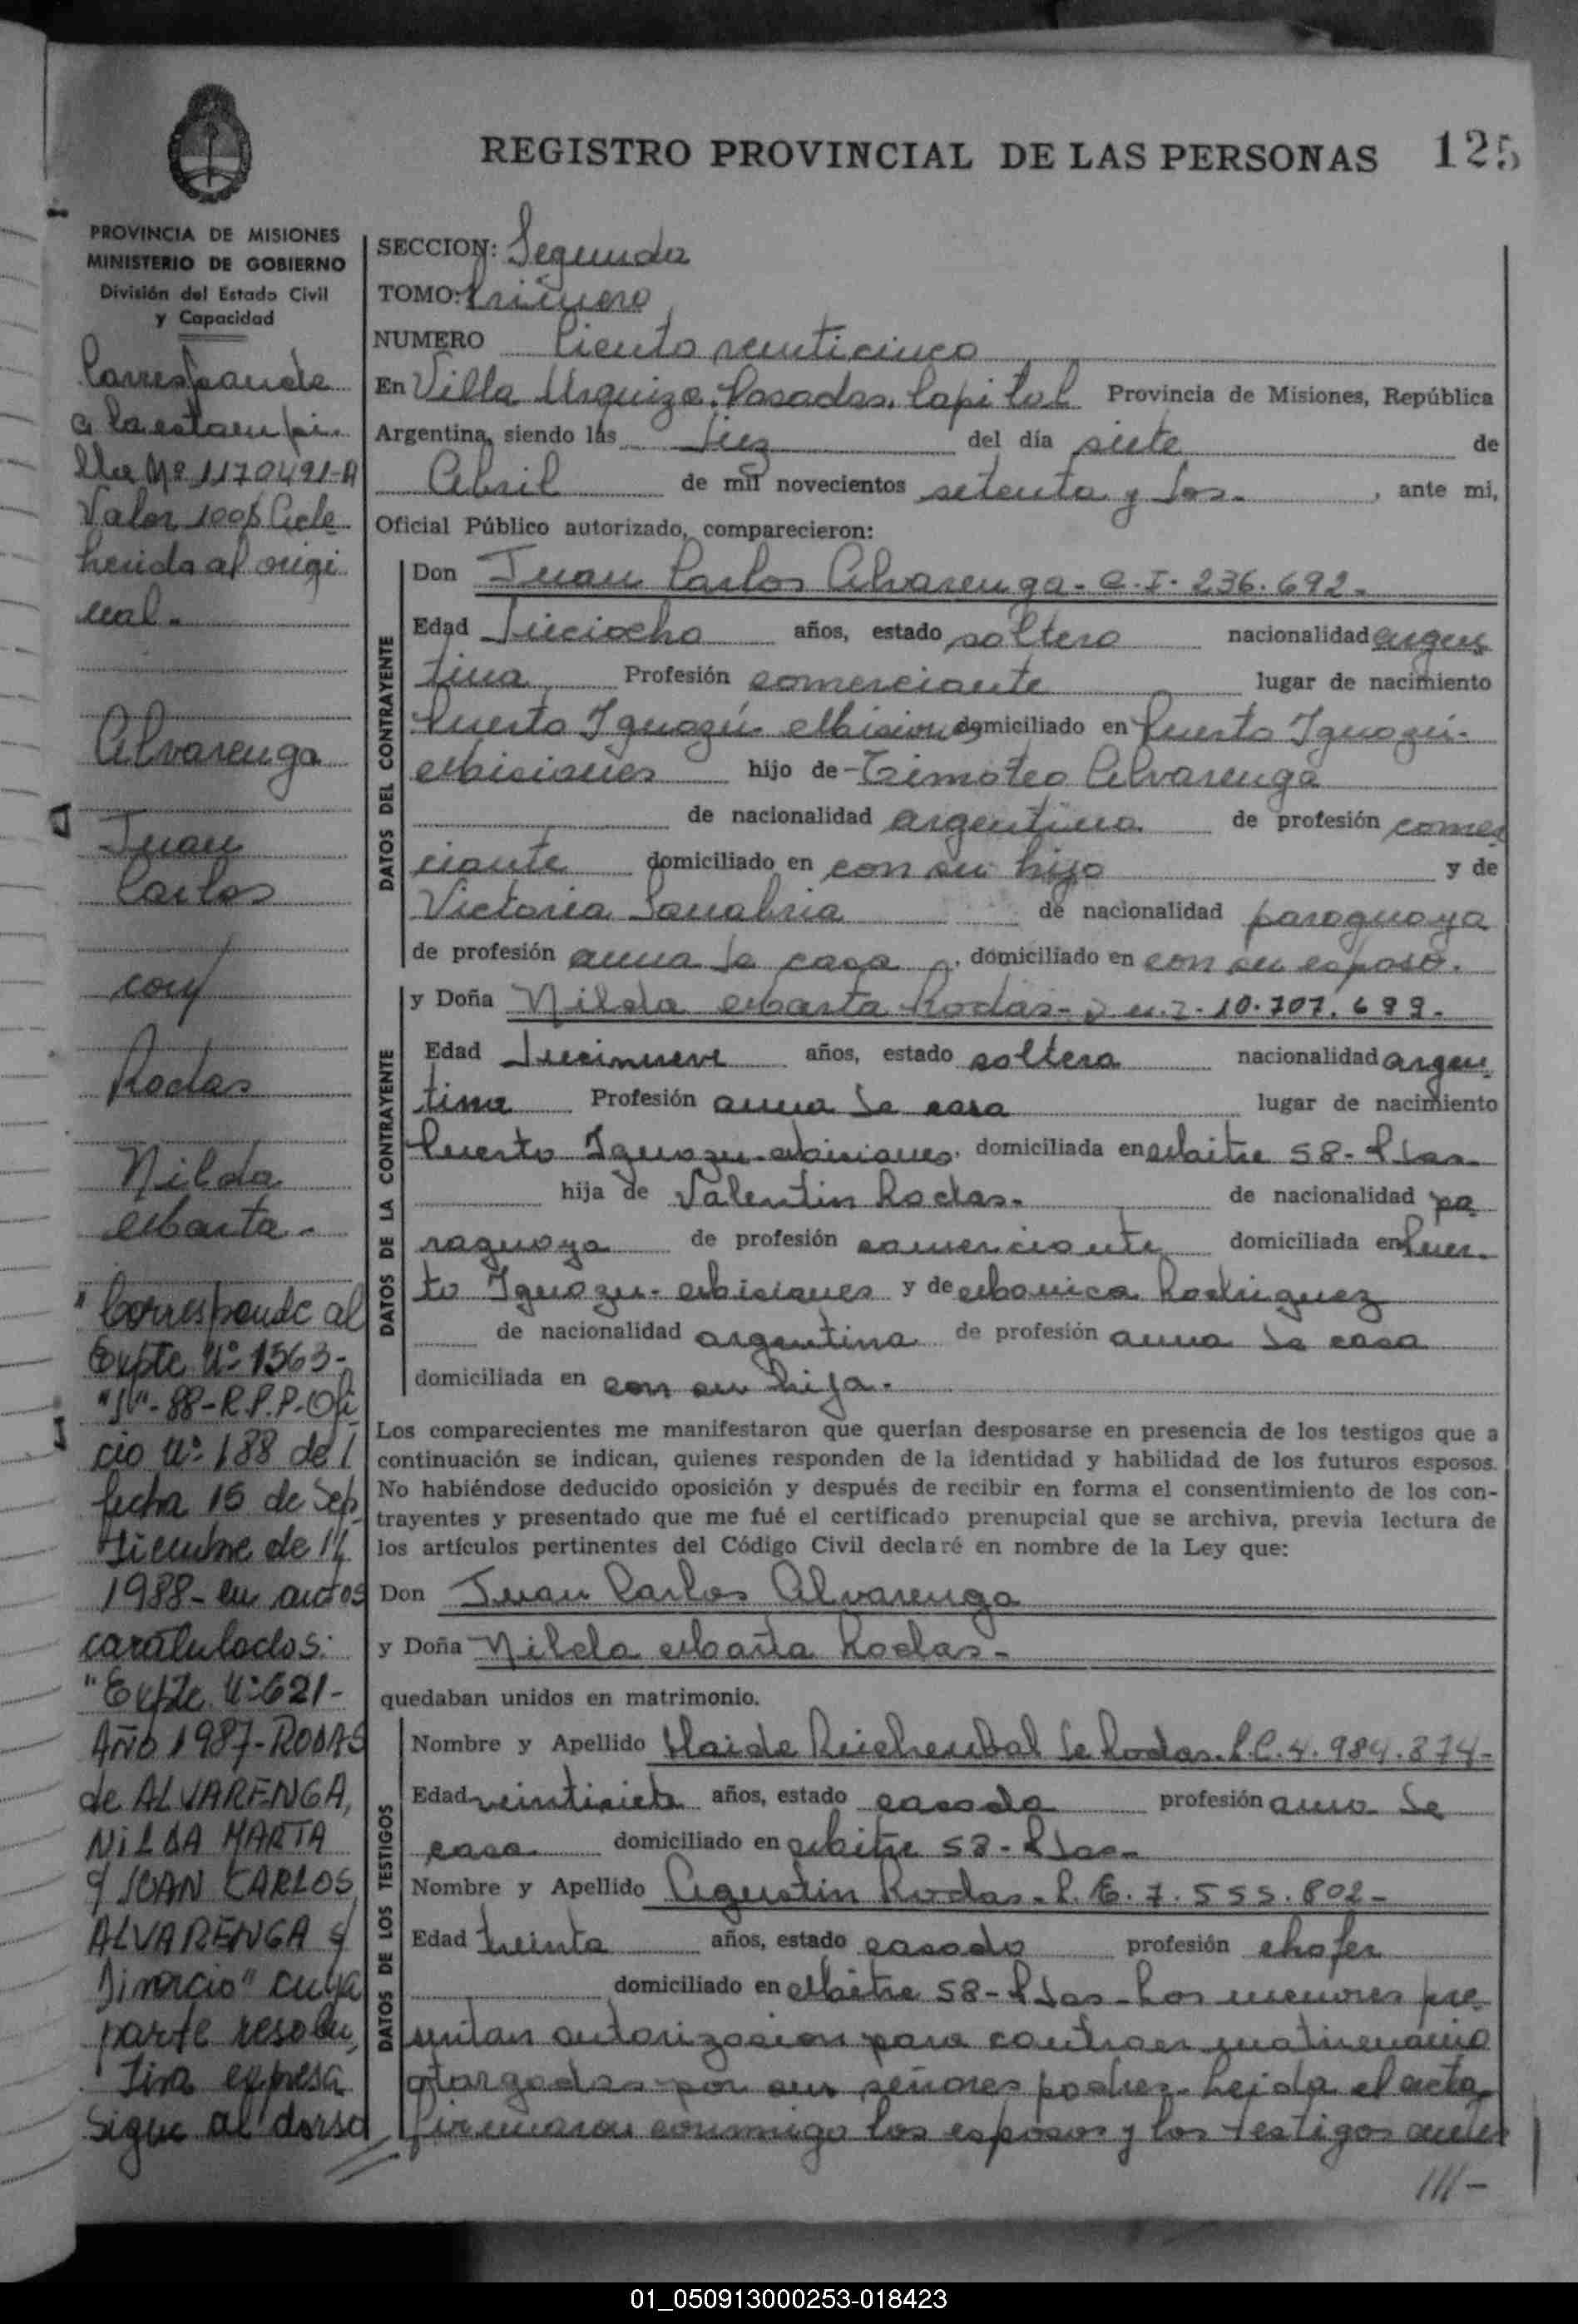 REGISTRO PROVINCIAL DE LAS PERSONAS 125
PROVINCIA DE MISIONES
MINISTERIO DE GOBIERNO
División del Estado Civil
y Capacidad
Corresponde
a la estampi
lla Nº 1170491-A
Valor 100$ Adhe
herida al origi
nal.-
Alvarenga
Juan
Carlos
con
Rodas
Nilda
Marta.-
"Corresponde al
Expte Nº 1563-
88-R.P.P.-Ofi
cio Nº 188 de
fecha 15 de Sep
tiembre de
1988- en autos
caratulados:
"Expte. Nº 621-
Año 1987-RODAS
de ALVARENGA,
NILDA MARTA
y JUAN CARLOS
ALVARENGA s/
Divorcio" cuya
parte resolu
tiva expresa
sigue al dorso
SECCION: Segunda
TOMO: Primero
NUMERO Ciento veinticinco
En Villa Urquiza, Posadas, Capital Provincia de Misiones, República
Argentina, siendo las diez del día siete de
Abril de mil novecientos setenta y dos.- , ante mi,
Oficial Público autorizado, comparecieron:
DATOS DEL CONTRAYENTE
Don Juan Carlos Alvarenga - C.I. 236.692.-
Edad dieciocho años, estado soltero nacionalidad argen
tina Profesión comerciante lugar de nacimiento
Puerto Iguazú - Misiones domiciliado en Puerto Iguazú -
Misiones hijo de - Timoteo Alvarenga
de nacionalidad argentina de profesión comer
ciante domiciliado en con su hijo y de
Victoria Sanabria de nacionalidad paraguaya
de profesión ama de casa , domiciliado en con su esposo.
DATOS DE LA CONTRAYENTE
y Doña Nilda Marta Rodas - D.N.I. 10.707.699.-
Edad diecinueve años, estado soltera nacionalidad argen
tina Profesión ama de casa lugar de nacimiento
Puerto Iguazu - Misiones, domiciliada en Mitre 58 - Pdas
hija de Valentin Rodas.- de nacionalidad pa
raguaya de profesión comerciante domiciliada en Puer
to Iguazu - Misiones y de Monica Rodriguez
de nacionalidad argentina de profesión ama de casa
domiciliada en con su hija.-
Los comparecientes me manifestaron que querían desposarse en presencia de los testigos que a
continuación se indican, quienes responden de la identidad y habilidad de los futuros esposos.
No habiéndose deducido oposición y después de recibir en forma el consentimiento de los con-
trayentes y presentado que me fué el certificado prenupcial que se archiva, previa lectura de
los artículos pertinentes del Código Civil declaré en nombre de la Ley que:
Don Juan Carlos Alvarenga
y Doña Nilda Marta Rodas -
quedaban unidos en matrimonio.
DATOS DE LOS TESTIGOS
Nombre y Apellido Haide de Rodas - L.C. 4.984.874-
Edad veintisiete años, estado casada profesión ama de
casa domiciliado en Mitre 58 - Pdas -
Nombre y Apellido Agustin Rodas - L.E. 7.555.802-
Edad treinta años, estado casado profesión chofer
domiciliado en Mitre 58 - Pdas - Los menores pre
sentan autorizacion para contraer matrimonio
otorgadas por sus señores padres. Leida el acta
firmaron conmigo los esposos y los testigos antes
///-
01_050913000253-018423